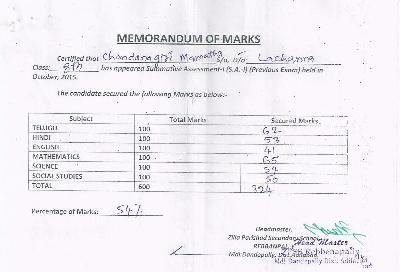 MEMORANDUM OF MARKS
Certified that Chandaragiri Mamatha S/o, D/o: Lachanna
Class: 8th has appeared Summative Assessment-I (S.A.-I) (Previous Exam) held in
October, 2015.
The candidate secured the following Marks as below:-
Subject Total Marks Secured Marks.
TELUGU 100 62
HINDI 100 53
ENGLISH 100 41
MATHEMATICS 100 65
SCIENCE 100
SOCIAL STUDIES 100 50
TOTAL 600 324
Percentage of Marks: 54%
Headmaster,
Zilla Parishad Secondary School
Head Master
Rebbenapally
Mdl: Dandepally, Dist. Adilabad.
Mdl: Dandepally Dist: